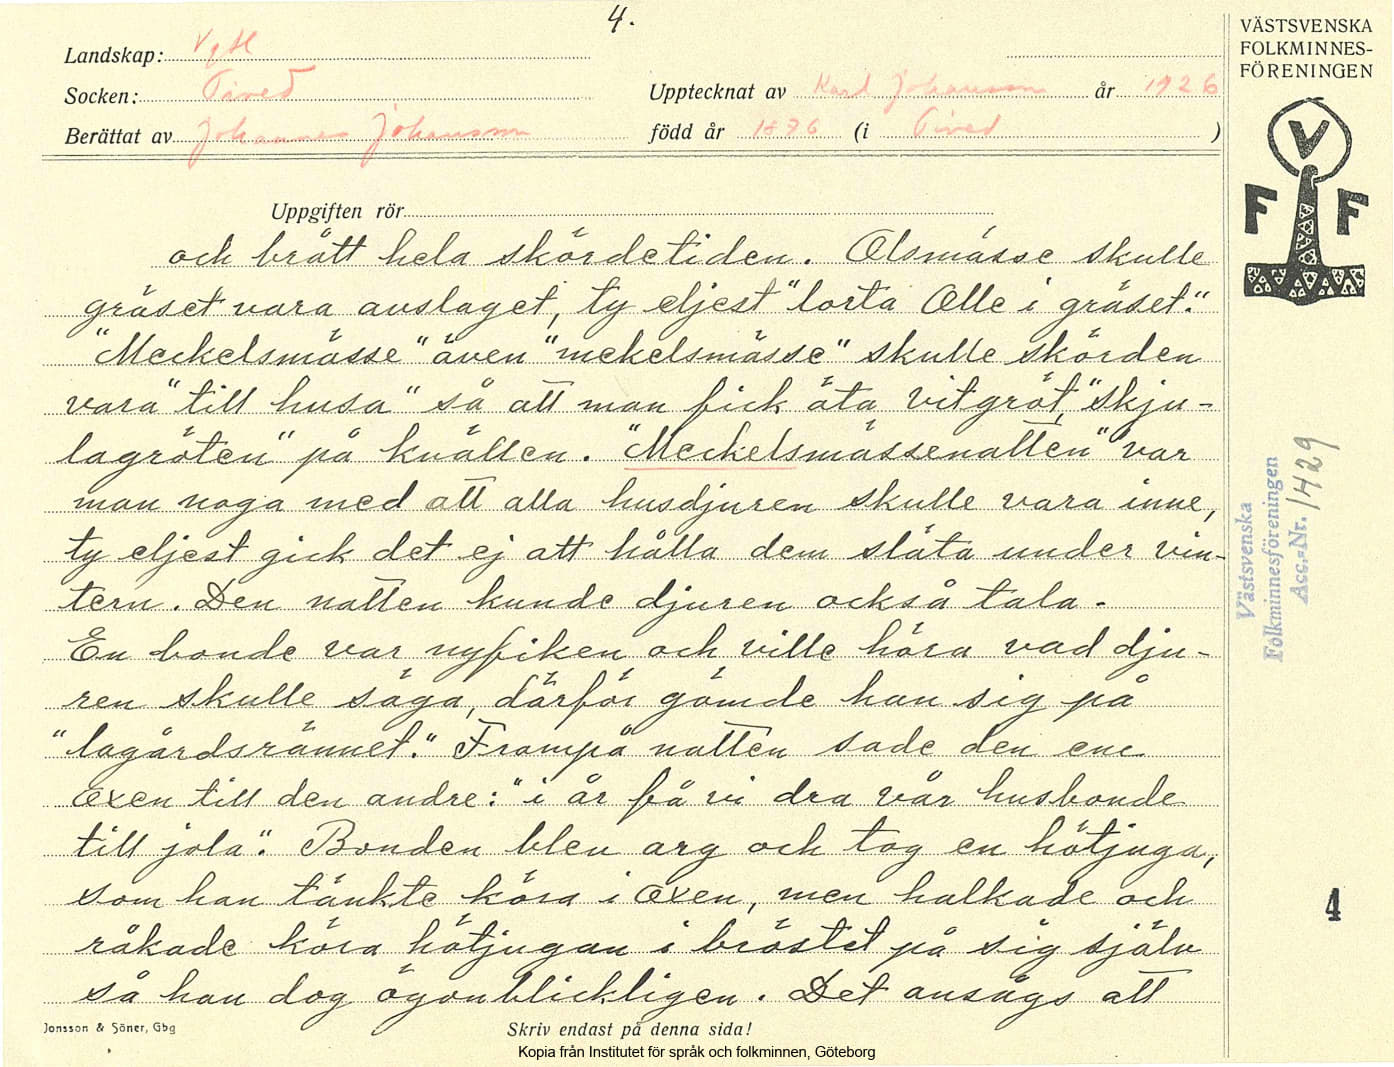 4.
Landskap: Vgtl
Socken: Tived
Upptecknat av Karl Johansson år 1926
Berättat av Johannes Johansson född år 1896 (i Tived )
VÄSTSVENSKA
FOLKMINNES-
FÖRENINGEN
V
F F
Uppgiften rör
och brått hela skördetiden. Olsmässe skulle
gräset vara avslaget, ty eljest "lorta Olle i gräset."
"Meckelsmässe" även "mekelsmässe" skulle skörden
vara "till husa" så att man fick äta vitgröt, "skju-
lagröten" på kvällen. "Meckelsmässenatten" var
man noga med att alla husdjuren skulle vara inne,
ty eljest gick det ej att hålla dem släta under vin-
tern. Den natten kunde djuren också tala.
En bonde var nyfiken och ville höra vad dju-
ren skulle säga, därför gömde han sig på
"lagårdsrännet." Frampå natten sade den ene
oxen till den andre: "i år få vi dra vår husbonde
till jola". Bonden blev arg och tog en hötjuga,
som han tänkte köra i oxen, men halkade och
råkade köra hötjugan i bröstet på sig själv
så han dog ögonblickligen. Det ansågs att
Västsvenska
Folkminnesföreningen
Acc.=Nr. 1429
4
Jonsson & Söner, Gbg
Skriv endast på denna sida!
Kopia från Institutet för språk och folkminnen, Göteborg